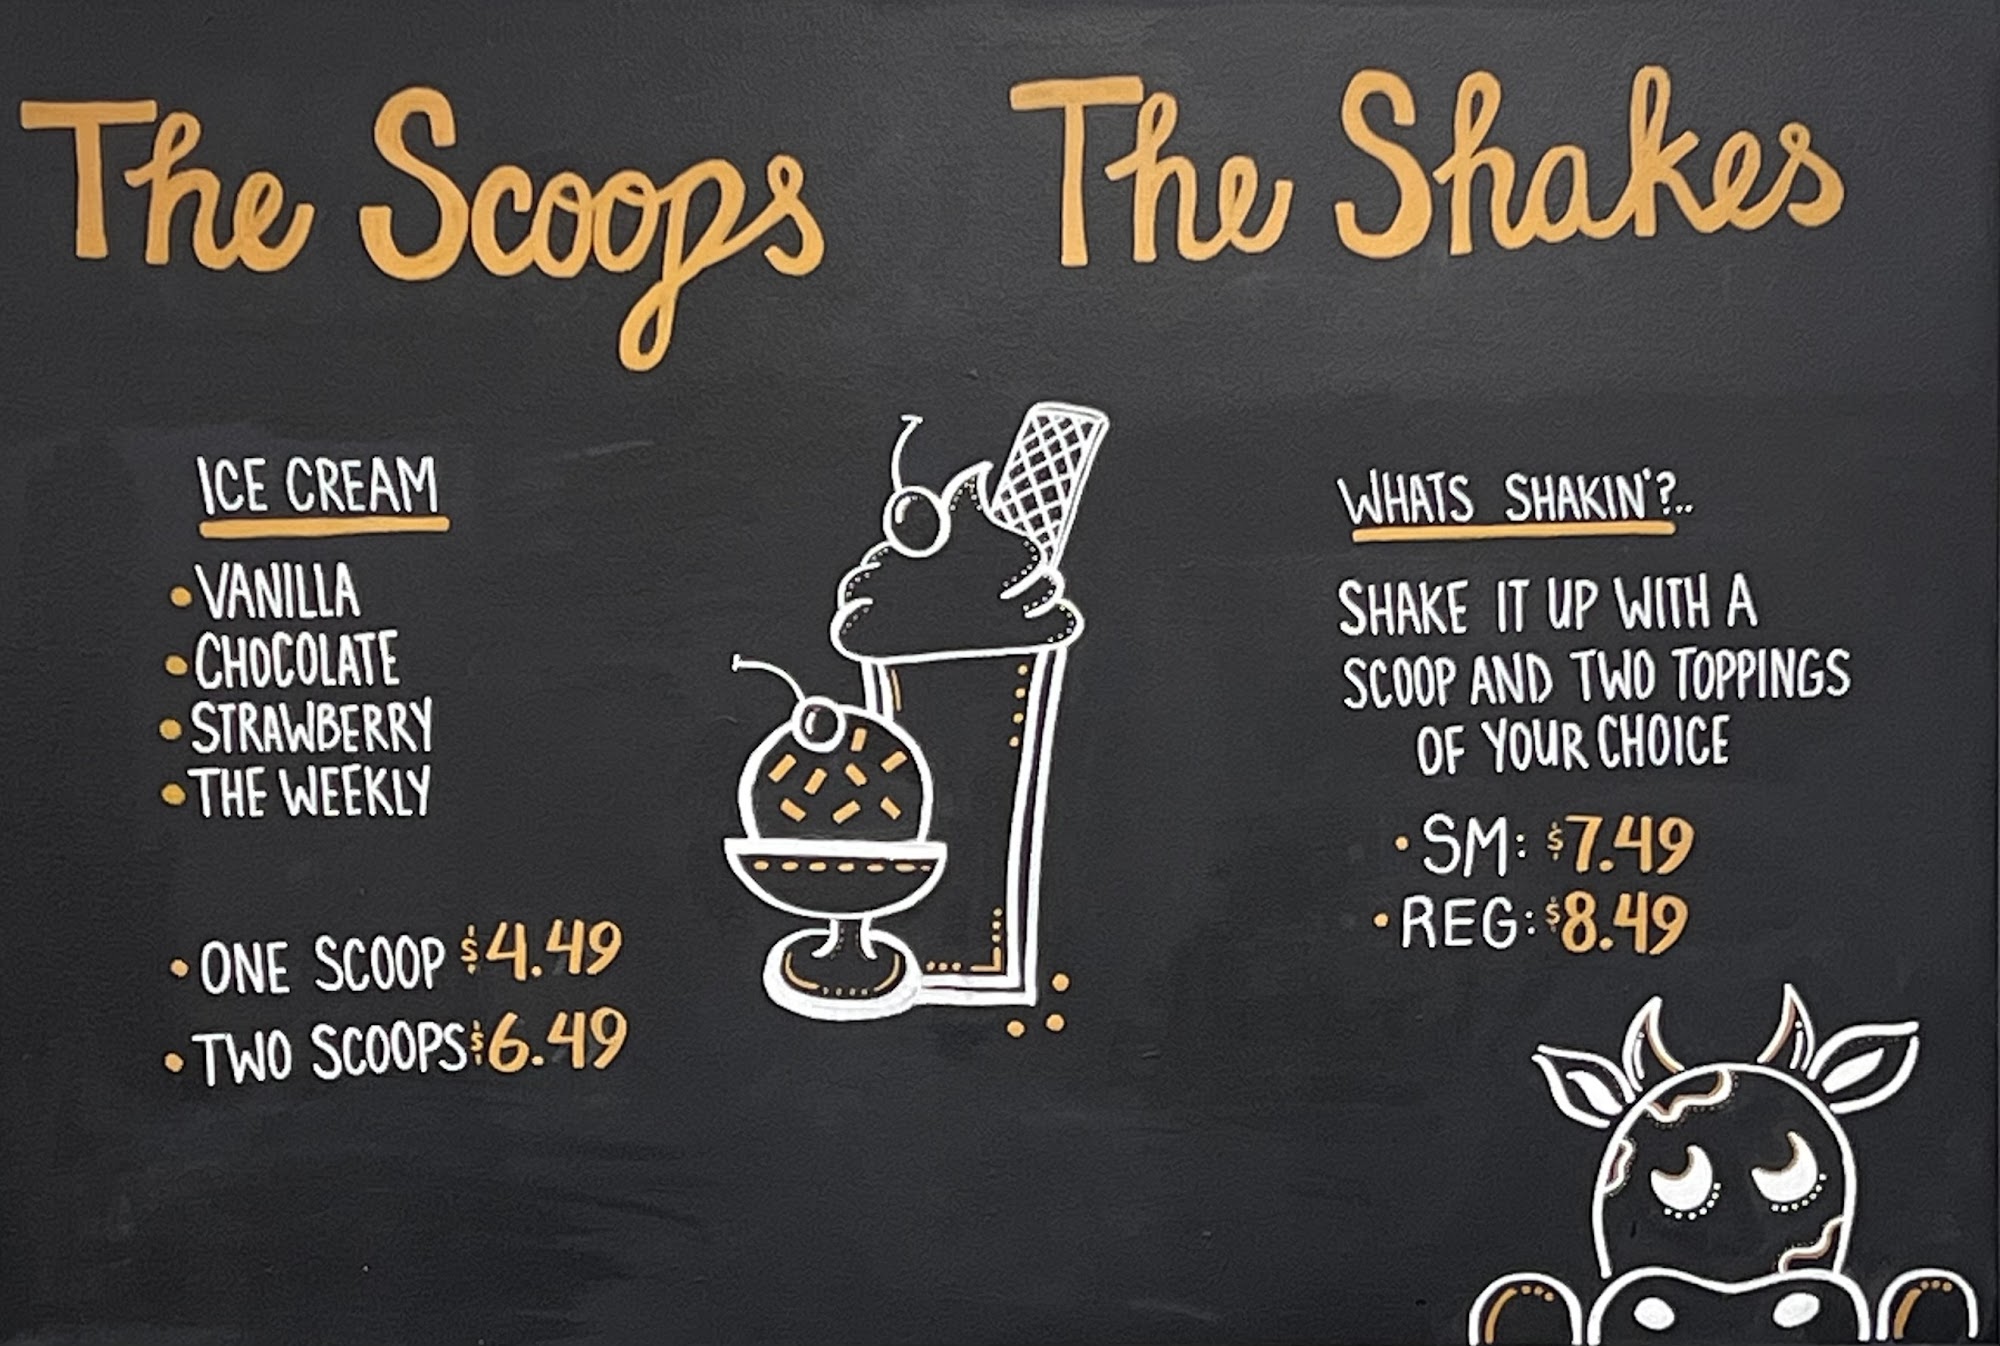 The Scoops
ICE CREAM
• VANILLA
• CHOCOLATE
• STRAWBERRY
• THE WEEKLY
• ONE SCOOP $4.49
• TWO SCOOPS $6.49
The Shakes
WHATS SHAKIN'?..
SHAKE IT UP WITH A
SCOOP AND TWO TOPPINGS
OF YOUR CHOICE
• SM: $7.49
• REG: $8.49